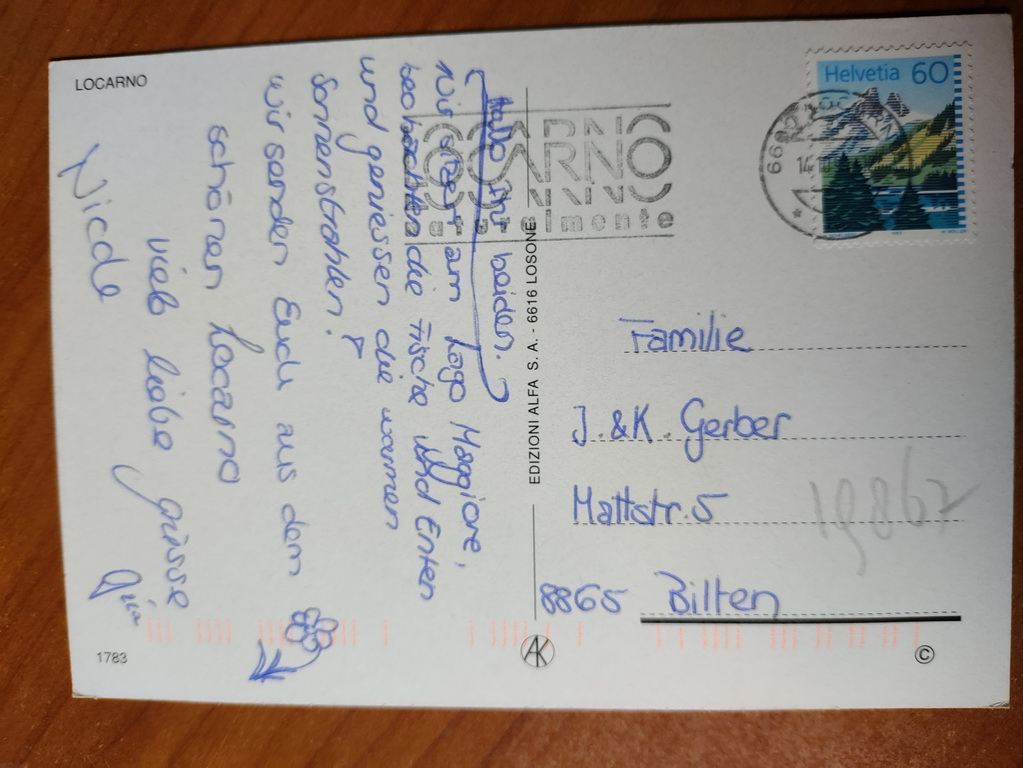 LOCARNO
Hallo Ihr beiden.
Wir sitzen am Lago Maggiore,
beobachten die Fische und Enten
und geniessen die warmen
Sonnenstrahlen!
Wir senden Euch aus dem
schönen Locarno
viele liebe grüsse
Nicole
1783
EDIZIONI ALFA S. A. - 6616 LOSONE
AK
LOCARNO
naturalmente
Helvetia 60
Familie
J. & K. Gerber
Mattstr. 5
8865 Bilten
19867
©